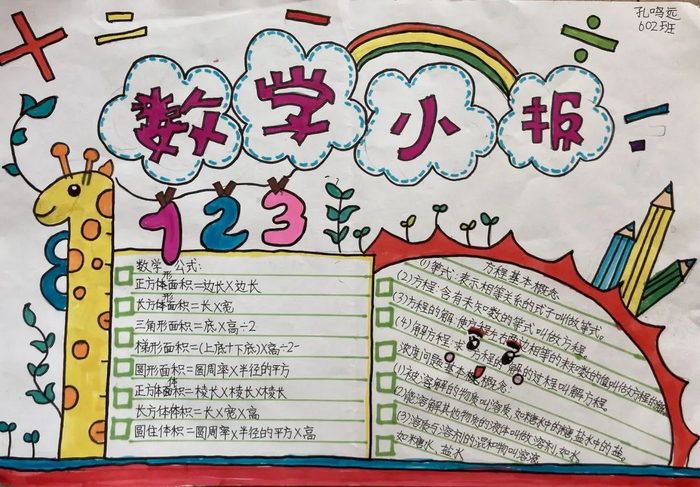 孔鸣远
602班
数学小报
123
数学 公式:
正方形面积=边长×边长
长方形面积=长×宽
三角形面积=底×高÷2
梯形面积=(上底+下底)×高÷2
圆形面积=圆周率×半径的平方
正方体体积=棱长×棱长×棱长
长方体体积=长×宽×高
圆住体积=圆周率×半径的平方×高
方程基本概念
(1)等式:表示相等关系的式子叫做等式。
(2)方程:含有未知数的等式叫做方程。
(3)方程的解:使方程左右两边相等的未知数的值叫做方程的解
(4)解方程:求方程的解的过程叫解方程。
浓度问题基本概念:
(1)被溶解的物质叫溶质.如糖水中的糖.盐水中的盐。
(2)能溶解其他物质的液体叫做溶剂.如水
(3)溶质与溶剂的混和物叫溶液
如糖水、盐水